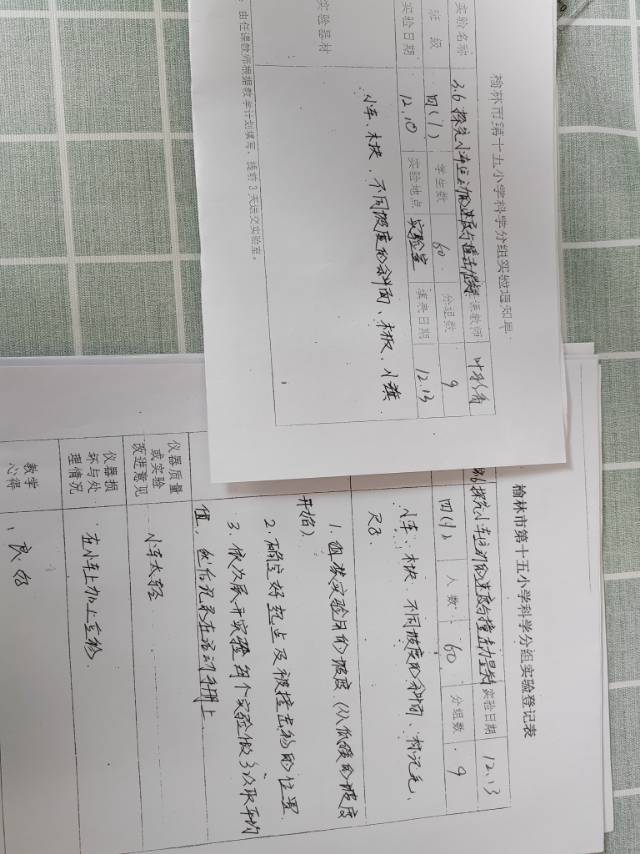 榆林市第十五小学科学分组实验通知单
实验名称 3.6探究小车运动的速度与撞击力 任课教师 叶
班级 四(1) 学生数 60 分组数 9
实验日期 12.10 实验地点 实验室 填表日期 12.13
实验器材
小车、木块、不同坡度的斜面、木板、小旗
由任课教师根据教学计划填写,提前3天送交实验室。
榆林市第十五小学科学分组实验登记表
探究小车运动的速度与撞击力 实验日期 12.13
四(1) 人数 60 分组数 9
小车、木块、不同坡度的斜面、标记毛、
尺子.
1. 组装实验用的坡度(从低缓的坡度
开始)
2. 确定好起点及被撞击物的位置
3. 依次展开实验 每个实验做3次取平均
值,然后记录在活动手册上
仪器质量或实验改进意见 小车太轻
仪器损坏与处理情况 在小车上加上重物
教学心得 良好